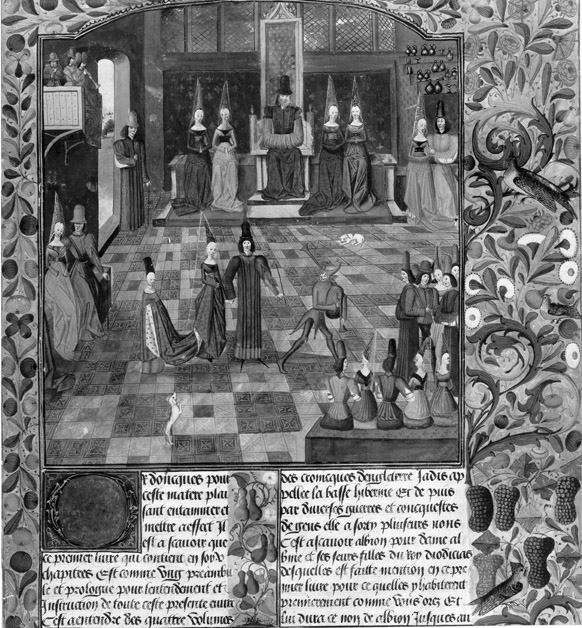 r doncques pour
ceste matere plai
sant entammer et
mettre aeffect Jl
est a scauoir que
ce premier liure qui contient en soy
chapitres Est comme Vng preambu
le et prologue pour lentendement et
Instruction de toute ceste presente euure
Cest aentendre des quattre Volumes
des cromcques dengleterre Jadis ap
pellee la basse hibernie Et de puis
par diuerses guerres et concquestes
de gens elle a sorty plusieurs nons
Cest ascauoir albion pour dame al
bine et ses seurs filles du Roy diodicias
desquelles est faitte mention en ce pre
mier liure pour ce quelles y habiterent
premierement comme Vous orez Et
lui dura ce non de albion Jusques au